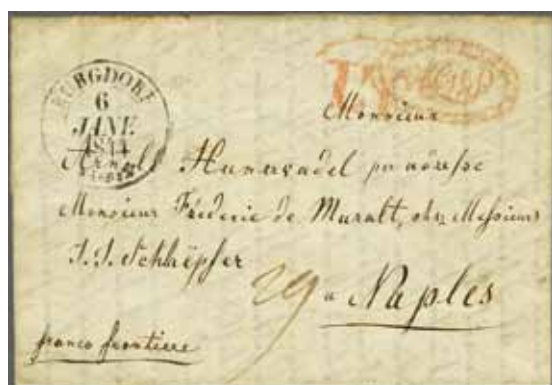 BURGDORF
6
JANV.
1844
Monsieur
Hunerwadel par adresse
Monsieur Fréderic de Muralt, chez Messieurs
J. J. Schlæpfer
29 a Naples
franco frontiere